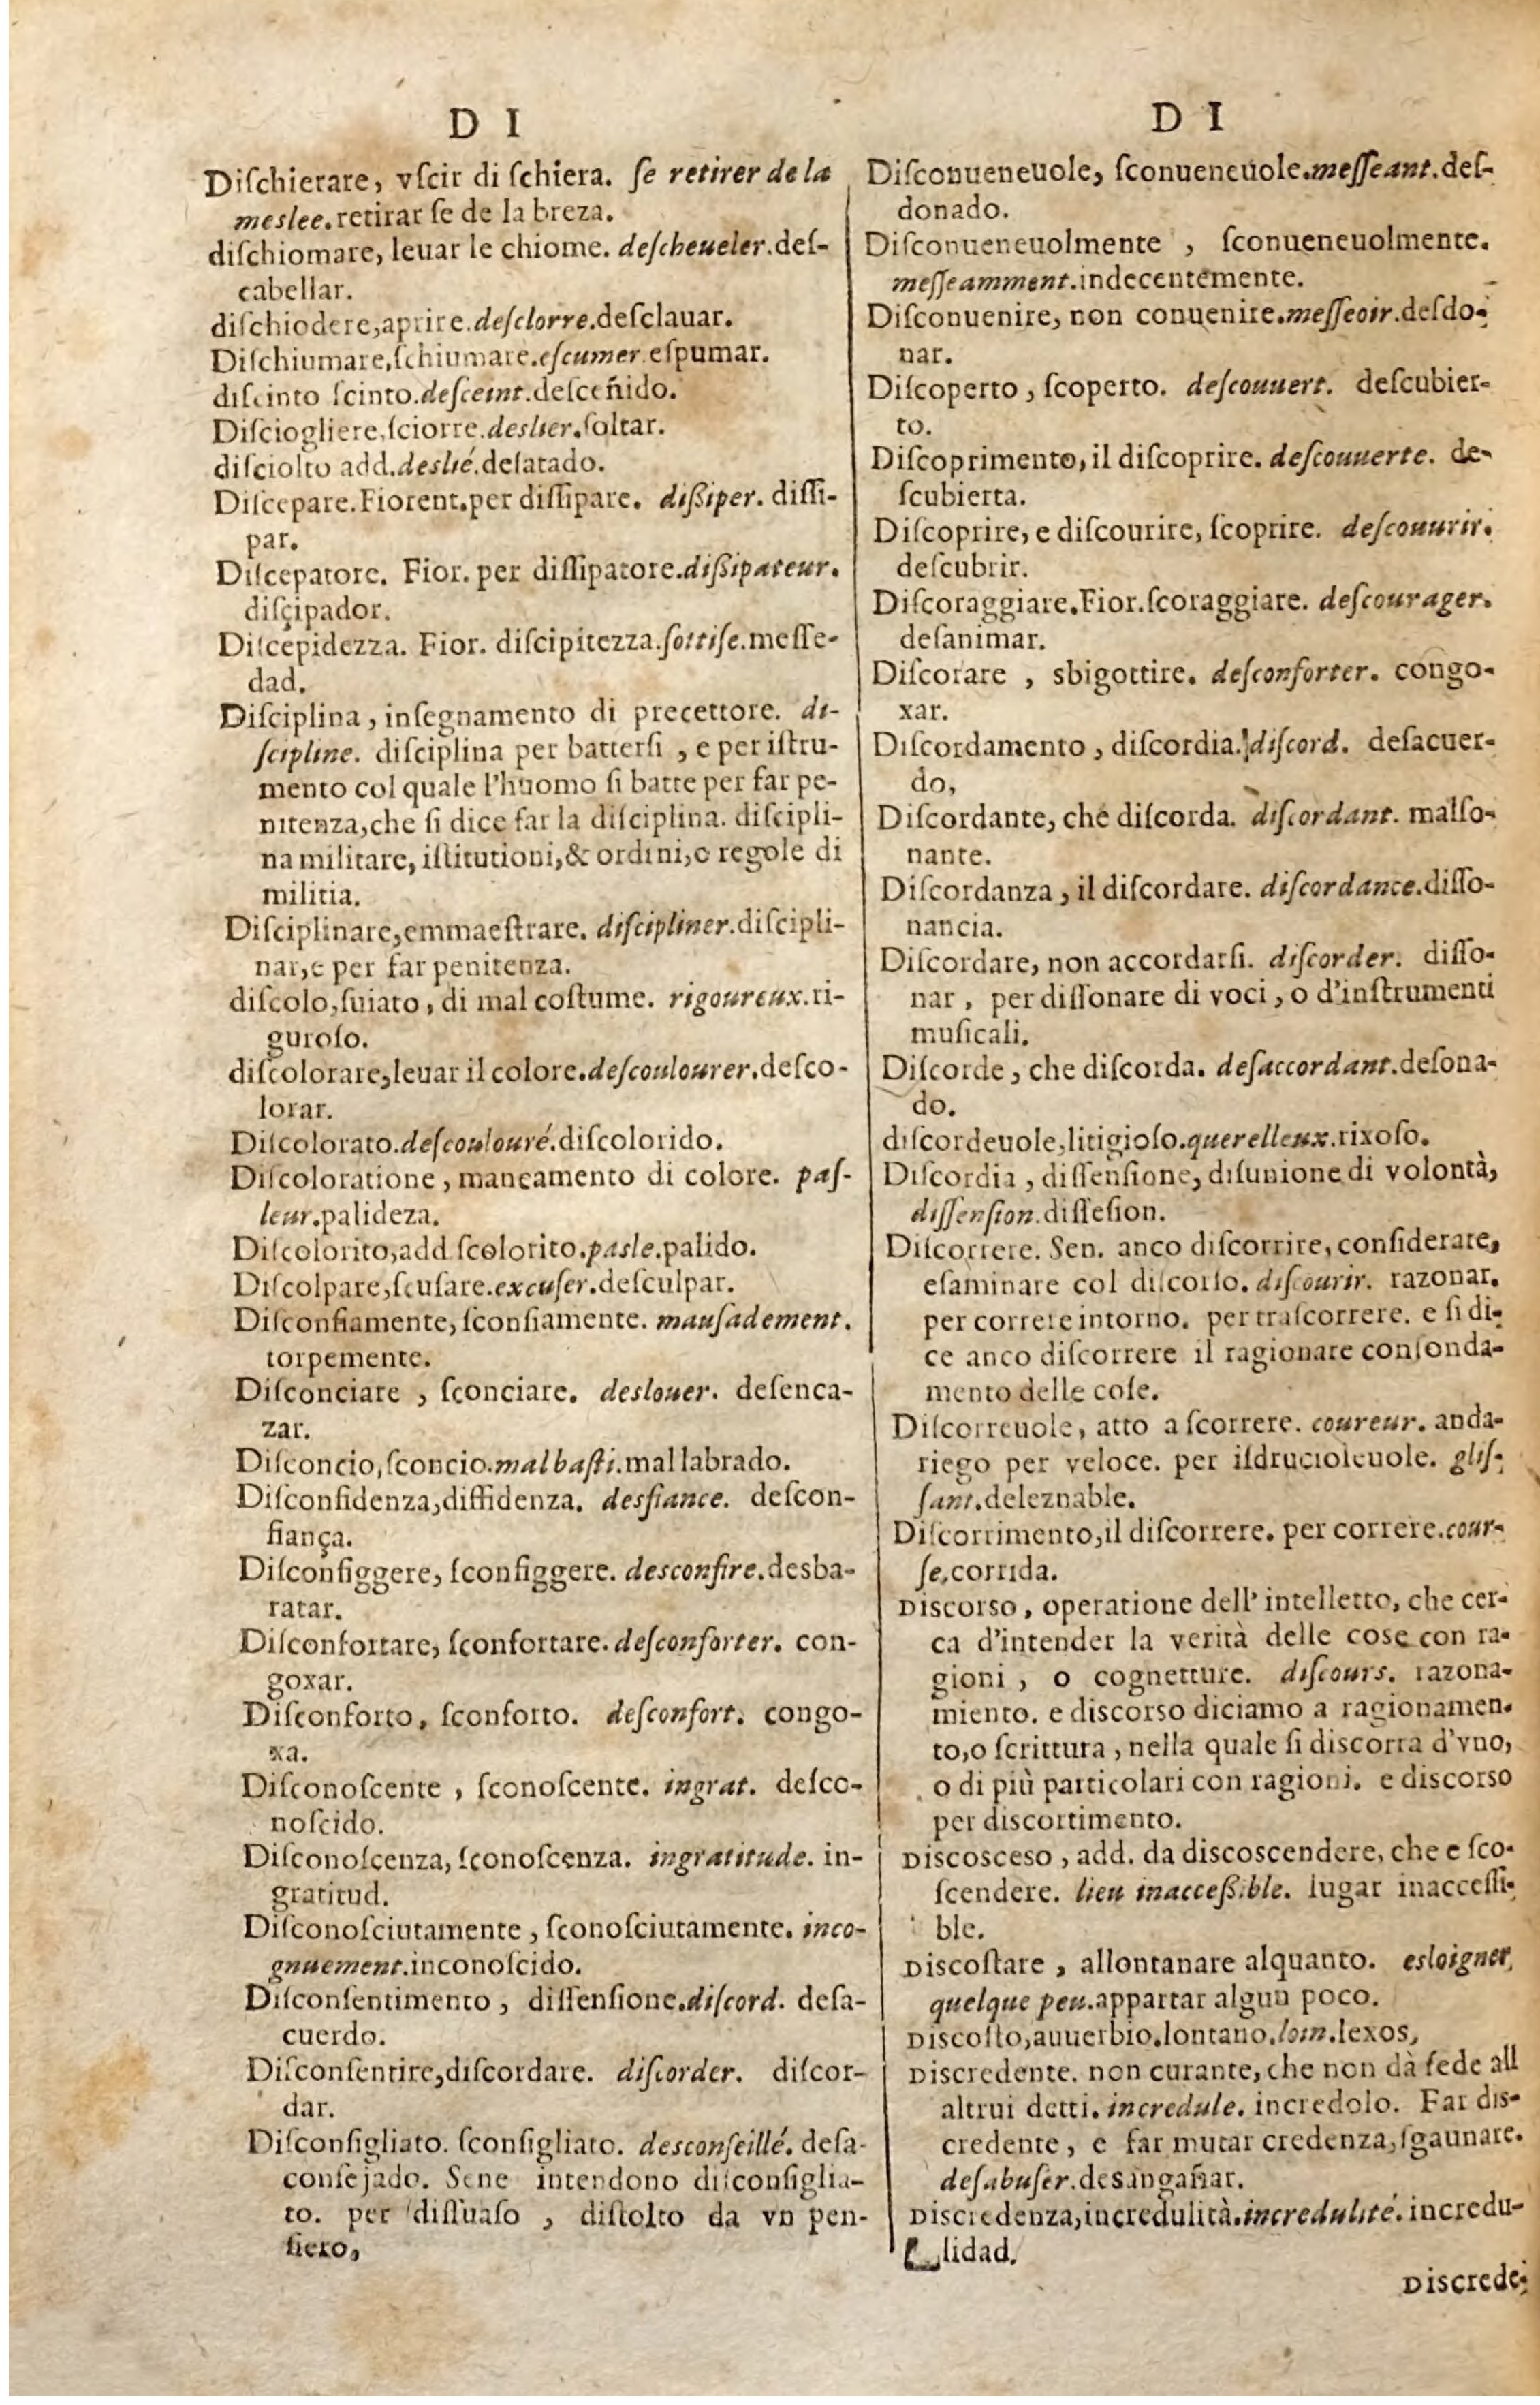 D I
Diſchierare, vſcir di ſchiera. ſe retirer de la
meslee. retirar ſe de la breza.
diſchiomare, leuar le chiome. deſcheueler. deſ-
cabellar.
diſchiodere, aprire. deſclorre. deſclauar.
Diſchiumare, ſchiumare. eſcumer. eſpumar.
diſcinto ſcinto. deſceint. deſceñido.
Diſciogliere, ſciorre. deslier. ſoltar.
diſciolto add. deslié. deſatado.
Diſcepare. Fiorent. per diſſipare. dißiper. diſſi-
par.
Diſcepatore. Fior. per diſſipatore. dißipateur.
diſçipador.
Diſcepidezza. Fior. diſcipitezza. ſottiſe. meſſe-
dad.
Diſciplina, inſegnamento di precettore. di-
ſcipline. diſciplina per batterſi, e per iſtru-
mento col quale l'huomo ſi batte per far pe-
nitenza, che ſi dice far la diſciplina. diſcipli-
na militare, iſtitutioni, & ordini, o regole di
militia.
Diſciplinare, emmaeſtrare. diſcipliner. diſcipli-
nar, e per far penitenza.
diſcolo, ſuiato, di mal coſtume. rigoureux. ri-
guroſo.
diſcolorare, leuar il colore. deſcoulourer. deſco-
lorar.
Diſcolorato. deſcoulouré. diſcolorido.
Diſcoloratione, mancamento di colore. paſ-
leur. palideza.
Diſcolorito, add ſcolorito. pasle. palido.
Diſcolpare, ſcuſare. excuſer. deſculpar.
Diſconfiamente, ſconfiamente. mauſadement.
torpemente.
Diſconciare, ſconciare. deslouer. deſenca-
zar.
Diſconcio, ſconcio. mal baſti. mal labrado.
Diſconfidenza, diffidenza. desfiance. deſcon-
fiança.
Diſconfiggere, ſconfiggere. desconfire. desba-
ratar.
Diſconfortare, ſconfortare. deſconforter. con-
goxar.
Diſconforto, ſconforto. deſconfort. congo-
xa.
Diſconoſcente, ſconoſcente. ingrat. deſco-
noſcido.
Diſconoſcenza, ſconoſcenza. ingratitude. in-
gratitud.
Diſconoſciutamente, ſconoſciutamente. inco-
gnuement. inconoſcido.
Diſconſentimento, diſſenſione. diſcord. deſa-
cuerdo.
Diſconſentire, diſcordare. diſcorder. diſcor-
dar.
Diſconſigliato. ſconſigliato. desconſeillé. deſa-
conſejado. Sene intendono diſconſiglia-
to. per diſſuaſo, diſtolto da vn pen-
ſiero,
D I
Diſconueneuole, ſconueneuole. meſſeant. deſ-
donado.
Diſconueneuolmente, ſconueneuolmente.
meſſeamment. indecentemente.
Diſconuenire, non conuenire. meſſeoir. deſdo-
nar.
Diſcoperto, ſcoperto. deſcouuert. deſcubier-
to.
Diſcoprimento, il diſcoprire. deſcouuerte. de-
ſcubierta.
Diſcoprire, e diſcourire, ſcoprire. deſcouurir.
deſcubrir.
Diſcoraggiare. Fior. ſcoraggiare. deſcourager.
deſanimar.
Diſcorare, sbigottire. deſconforter. congo-
xar.
Diſcordamento, diſcordia. diſcord. deſacuer-
do,
Diſcordante, che diſcorda. diſcordant. malſo-
nante.
Diſcordanza, il diſcordare. diſcordance. diſſo-
nancia.
Diſcordare, non accordarſi. diſcorder. diſſo-
nar, per diſſonare di voci, o d'inſtrumenti
muſicali.
Diſcorde, che diſcorda. deſaccordant. deſona-
do.
diſcordeuole, litigioſo. querelleux. rixoſo.
Diſcordia, diſſenſione, diſunione di volontà,
diſſenſion. diſſeſion.
Diſcorrere. Sen. anco diſcorrire, conſiderare,
eſaminare col diſcorſo. diſcourir. razonar.
per correre intorno. per traſcorrere. e ſi di-
ce anco diſcorrere il ragionare confonda-
mento delle coſe.
Diſcorreuole, atto a ſcorrere. coureur. anda-
riego per veloce. per iſdrucioleuole. gliſ-
ſant. deleznable.
Diſcorrimento, il diſcorrere. per correre. cour-
ſe. corrida.
Discorso, operatione dell' intelletto, che cer-
ca d'intender la verità delle cose con ra-
gioni, o cognetture. diſcours. razona-
miento. e discorso diciamo a ragionamen-
to, o ſcrittura, nella quale ſi discorra d'vno,
o di più particolari con ragioni. e discorso
per discortimento.
Discosceso, add. da discoscendere, che e ſco-
ſcendere. lieu inacceßible. lugar inacceſſi-
ble.
Discoſtare, allontanare alquanto. esloigner
quelque peu. appartar algun poco.
Discoſto, auuerbio. lontano. loin. lexos,
Discredente. non curante, che non dà fede all
altrui detti. incredule. incredolo. Far dis-
credente, e far mutar credenza, ſgaunare.
deſabuſer. desangañar.
Discredenza, incredulità. incredulité. incredu-
lidad.
Discrede-